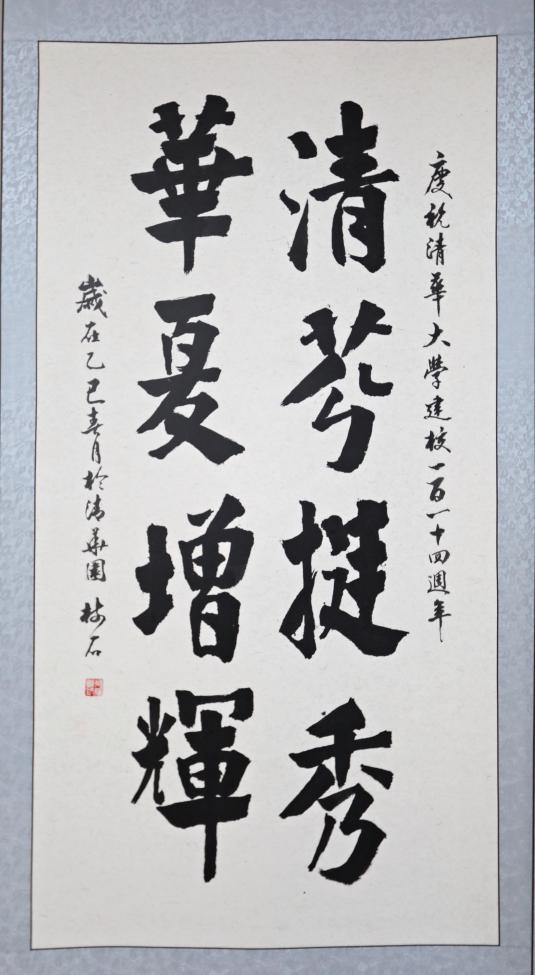 慶祝清華大學建校一百一十四週年
清芬挺秀
華夏增輝
歲在乙巳春月於清華園 樹石